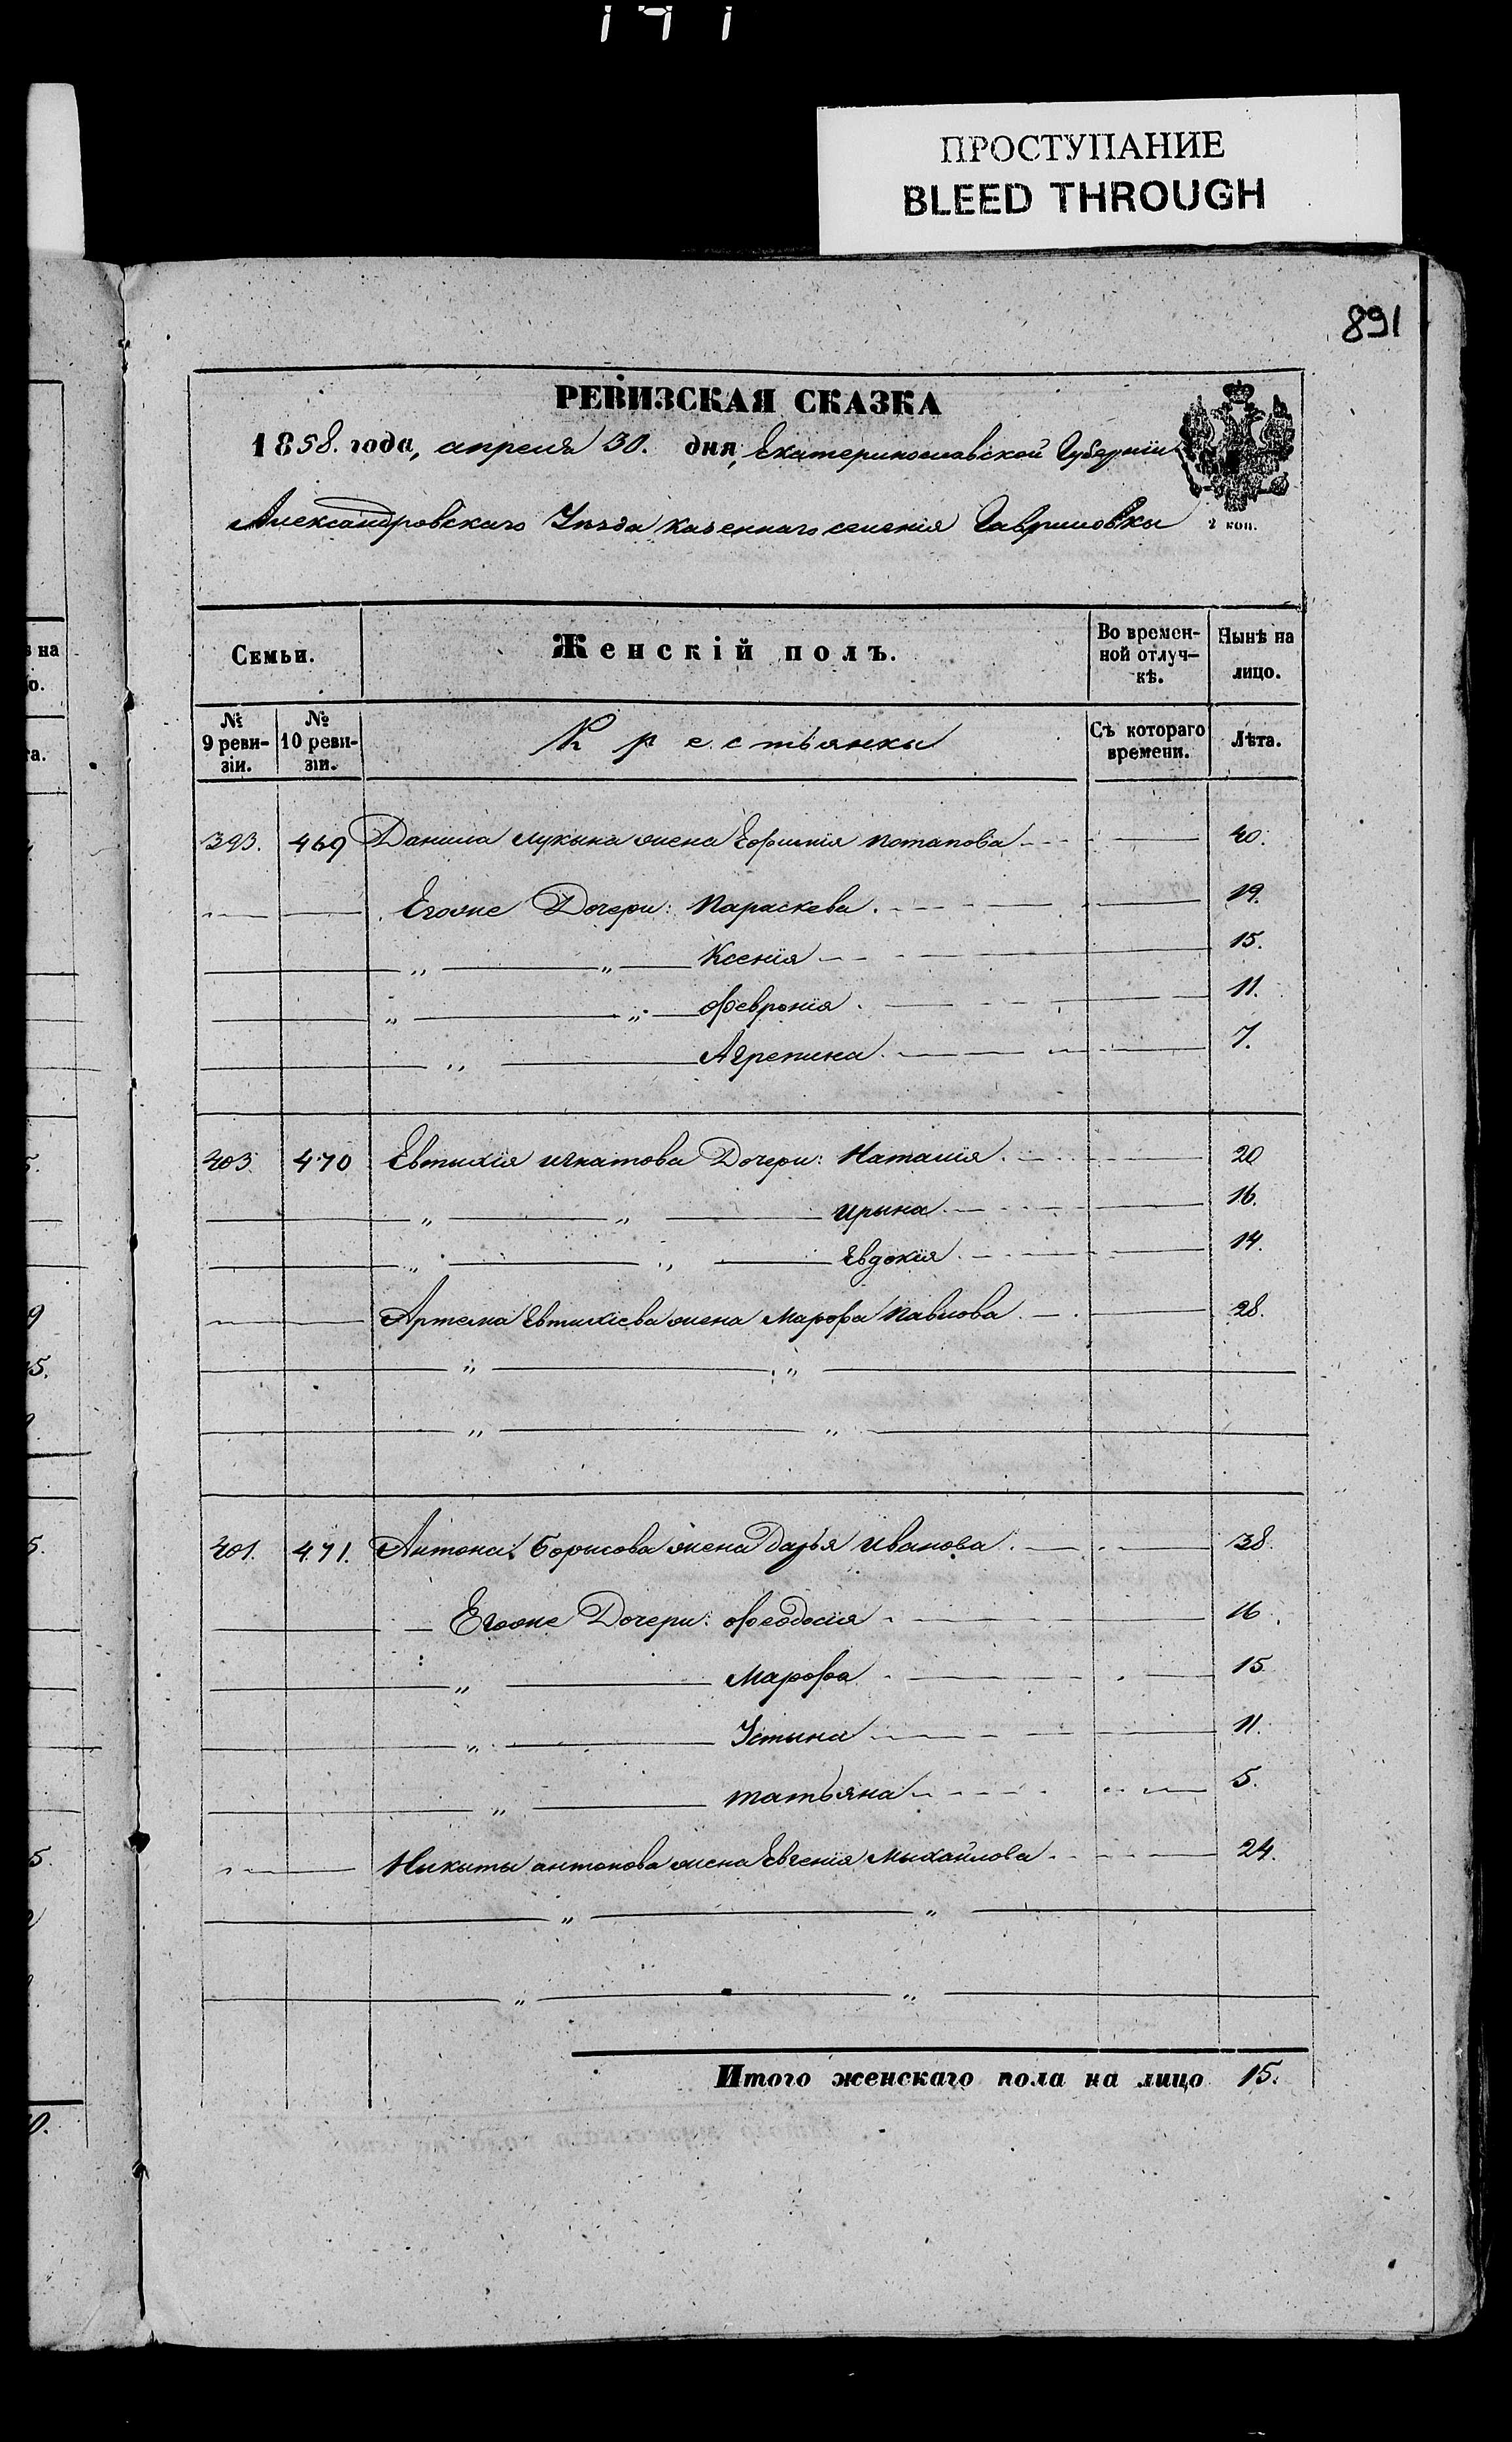 ПРОСТУПАНИЕ
BLEED THROUGH
891
РЕВИЗСКАЯ СКАЗКА
1858. года, апреля 30. дня, Екатеринославской Губерніи
Александровскаго Уѣзда казеннаго селенія Гавриловки
2 коп.
Семьи. Женскій полъ. Во времен-ной отлуч-кѣ. Нынѣ на лицо.
№ 9 реви-зіи. № 10 реви-зіи. Крестьянки Съ котораго времени. Лѣта.
393. 469 Данила Лукьина жена Ефимія Потапова 40.
Егоже Дочери: Параскева. 19.
" " Ксенія 15.
" " Февронія. 11.
" Агрепина. 7.
403. 470 Евтихія игнатова Дочери: Наталія. 20
" " ирына. 16.
" " Евдокія. 14.
Артема Евтихіева жена Марфа Павлова. 28.
" "
" "
401. 471. Антона Борисова жена Дарья Иванова. 38.
Егоже Дочери: Феодосія. 16.
" Марфа. 15
" Устина 11.
" татьяна 5.
Никиты антонова жена Евгенія Михайлова. 24.
" "
" "
Итого женскаго пола на лицо 15.